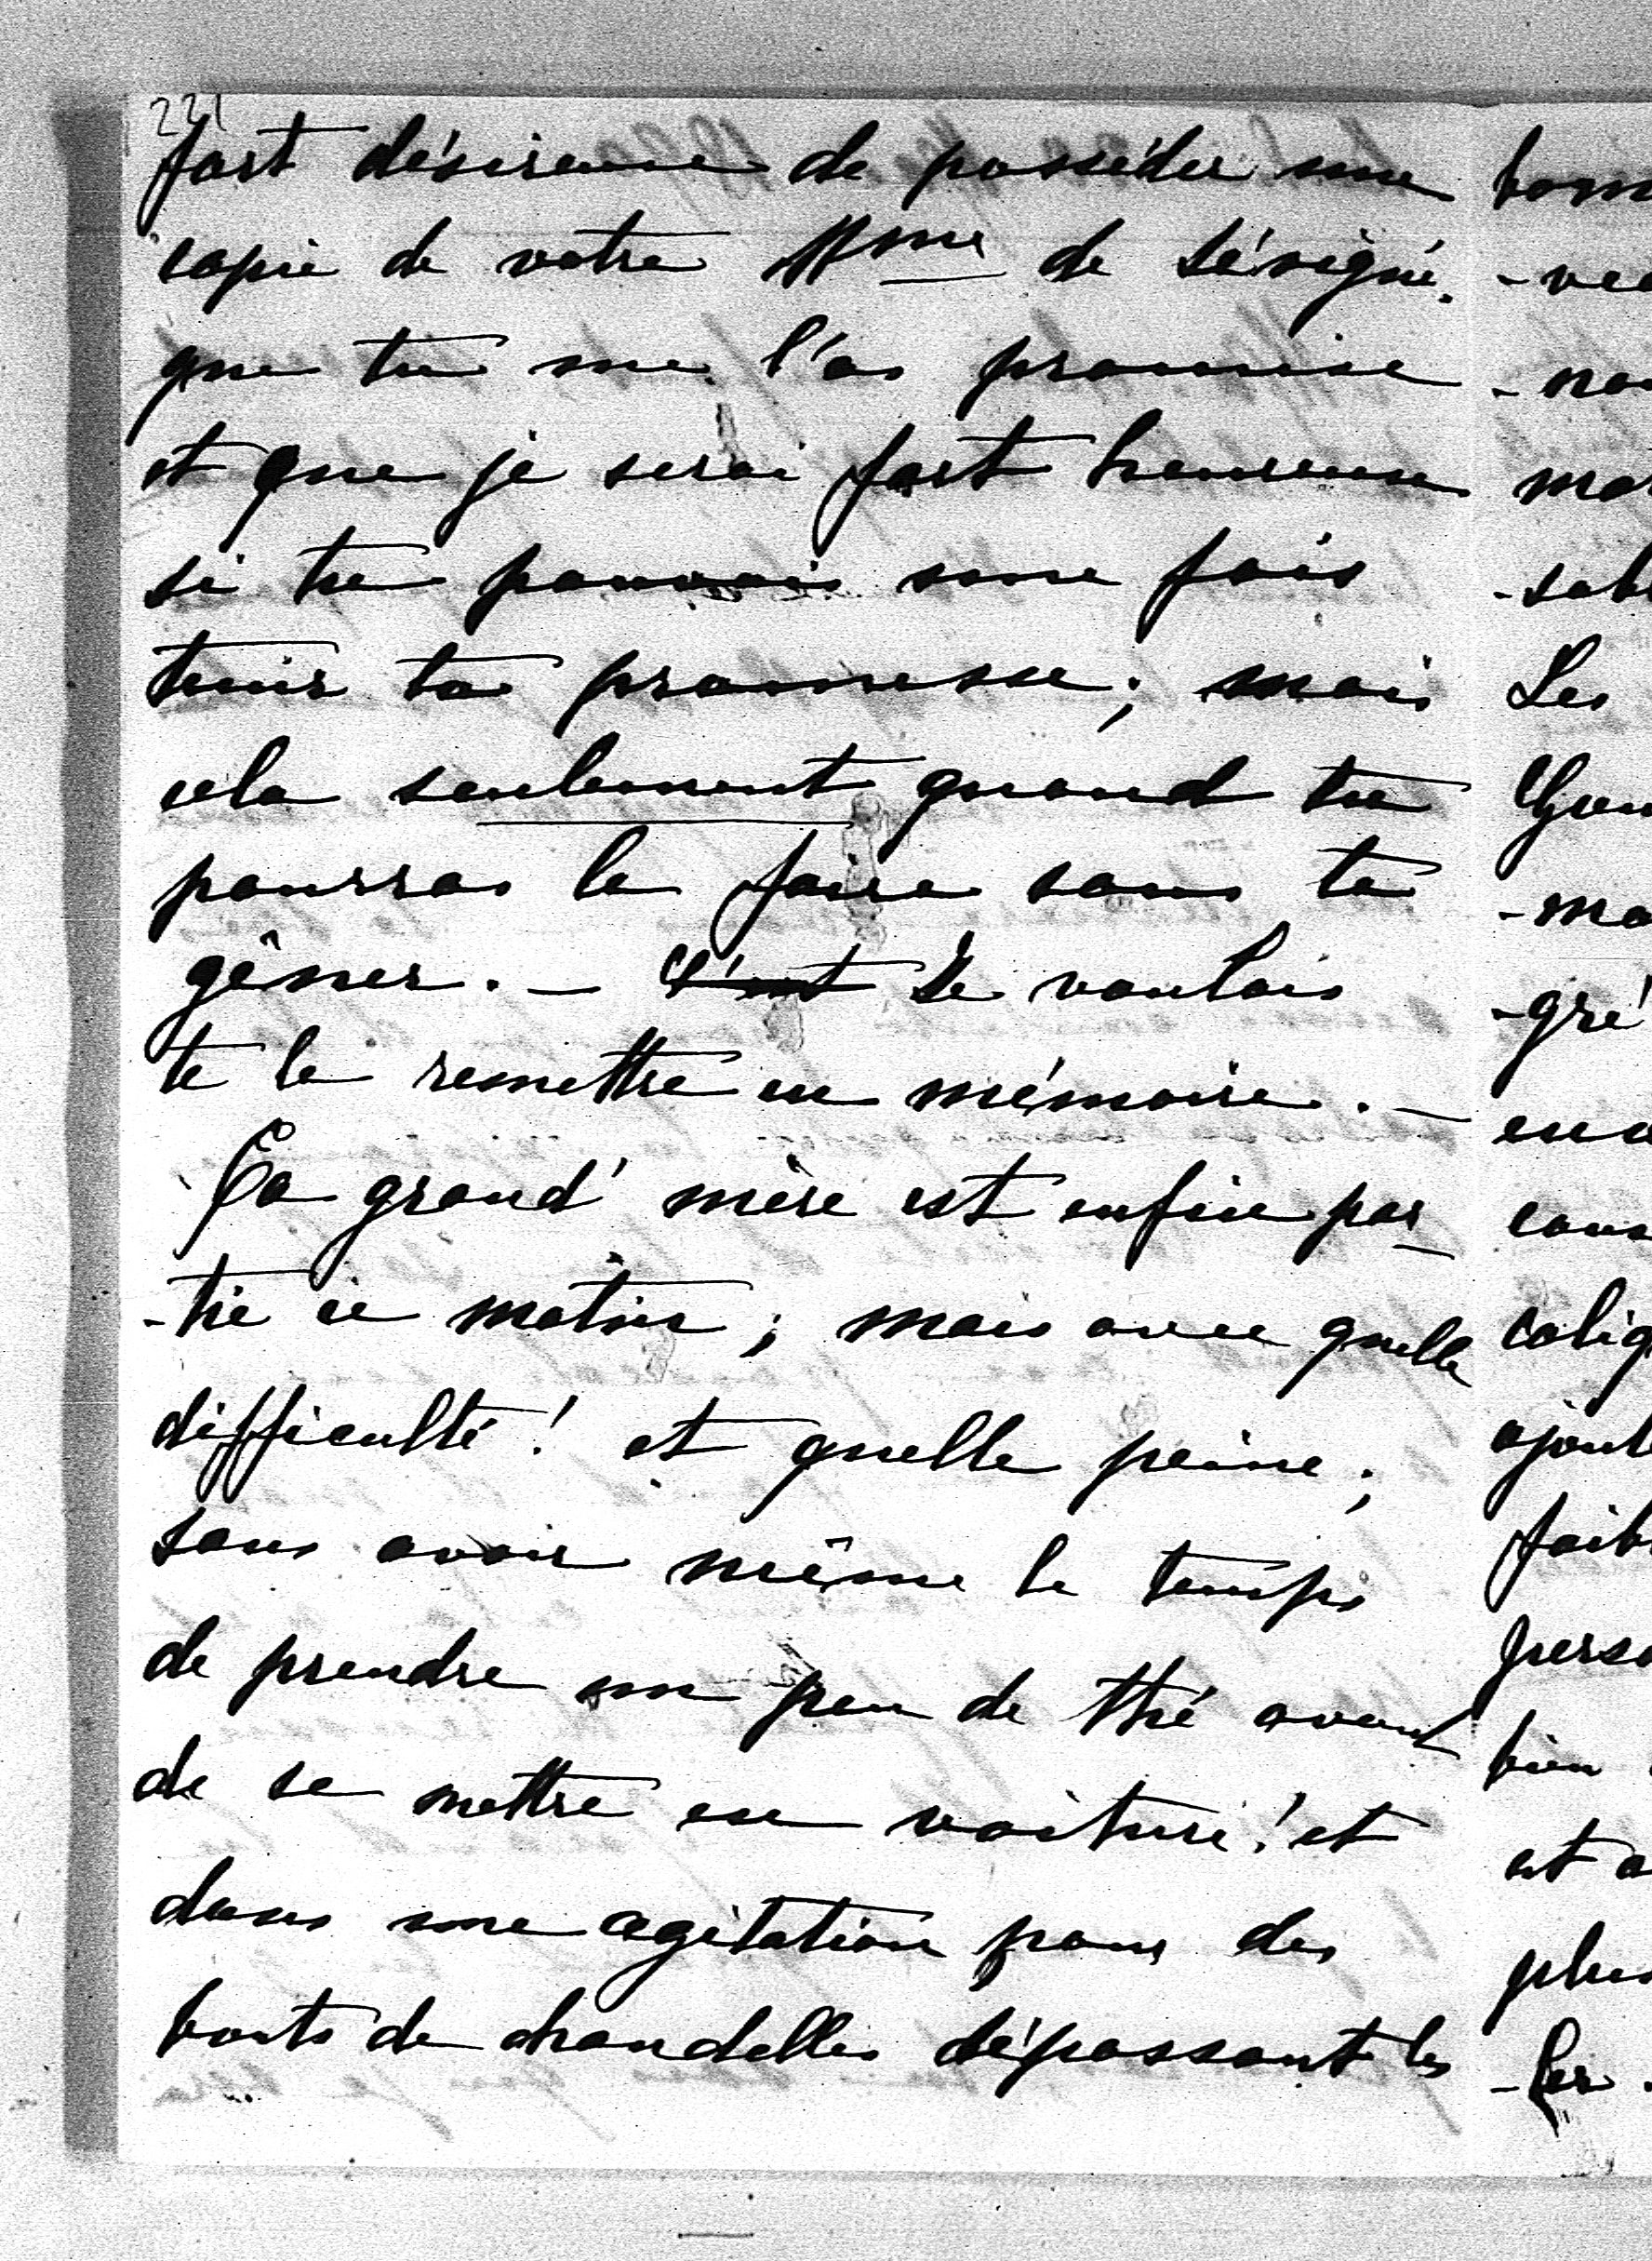 221
fort désireuse de posséder une
copie de votre Mme de Sévigné.
que tu me l'as promise
et que je serai fort heureuse
si tu pouvais une fois
tenir ta promesse; mais
cela seulement quand tu
pourras le faire sans te
gêner. — C'est Je voulais
te le remettre en mémoire. —
Ta grand' mère est enfin par
-tie ce matin; mais avec quelle
difficulté! et quelle peine;
sans avoir même le temps
de prendre un peu de thé avant
de se mettre en voiture! et
dans une agitation pour des
bouts de chandelles dépassant les
-vee
-no
mar
-sab
Les
-ma
-gré
cous
coliq
ajout
faib
perso
bien
est a
plus
-ler